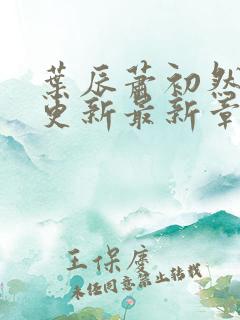 葉辰蕭初然
更新最新章
王保虔
未经同意禁止转载